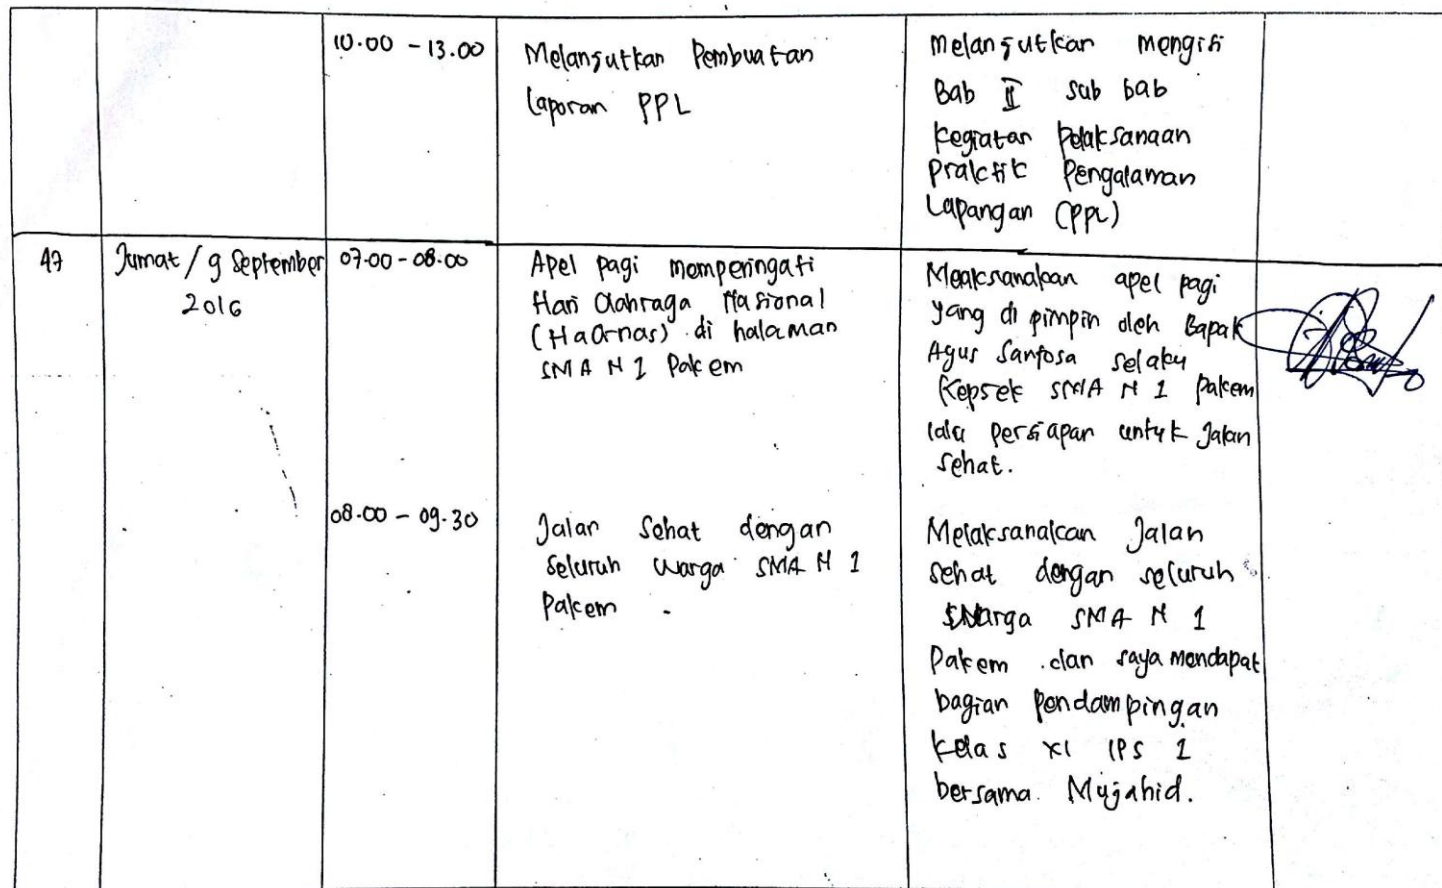 10.00 - 13.00
Melanjutkan Pembuatan
Laporan PPL
Melanjutkan mengisi
Bab II sub bab
kegiatan Pelaksanaan
Praktik Pengalaman
Lapangan (PPL)
47
Jumat / 9 September
2016
07.00 - 08.00
Apel pagi memperingati
Hari Olahraga Nasional
(HaOrnas) di halaman
SMA N 1 Pakem
Meaksanakan apel pagi
yang di pimpin oleh Bapak
Agus Santosa selaku
Kepsek SMA N 1 Pakem
lalu persiapan untuk Jalan
Sehat.
08.00 - 09.30
Jalan Sehat dengan
Seluruh Warga SMA N 1
Pakem
Melaksanakan Jalan
Sehat dengan seluruh
Warga SMA N 1
Pakem dan saya mendapat
bagian Pendampingan
Kelas XI IPS 1
bersama Mujahid.